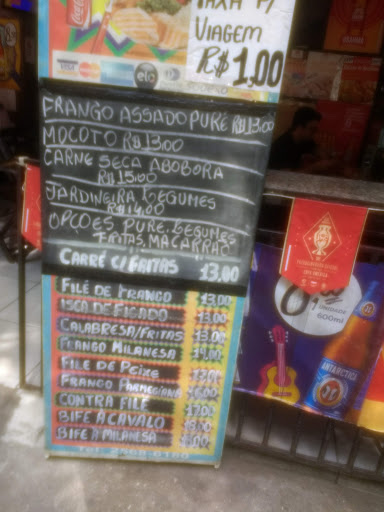 TAXA P/
VIAGEM
R$1,00
Coca-Cola
VISA
elo
FRANGO ASSADO PURÊ R$13,00
MOCOTO R$13,00
CARNE SECA ABOBORA
R$15,00
JARDINEIRA, LEGUMES
R$14,00
OPÇOES, PURE, LEGUMES
FRITAS, MACARRÃO
CARRÉ C/FRITAS 13,00
FILÉ DE FRANGO 13,00
ISCA DE FIGADO 13,00
CALABRESA/FRITAS 13,00
FRANGO MILANESA 14,00
FILE DE PEIXE
FRANGO
CONTRA FILÉ
BIFE A CAVALO
BIFE À MILANESA
600ml
ANTARCTICA